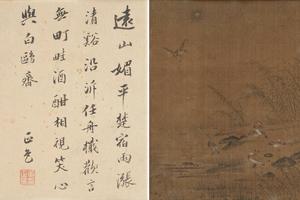 遠山媚平楚宿雨漲
清谿沿泝任舟檝歡言
無町畦酒酣相視笑心
與白鷗齊